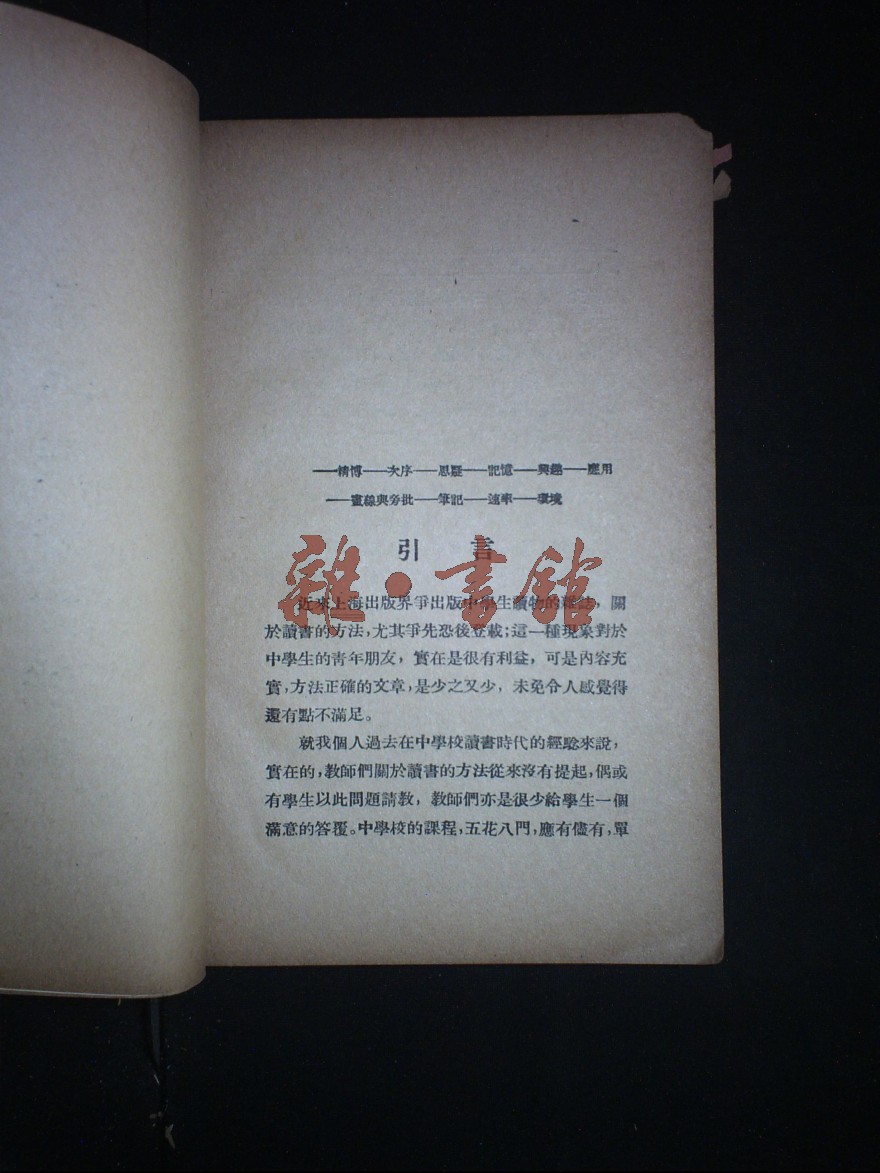 ——精博——次序——思疑——記憶——興趣——應用
——畫線與旁批——筆記——速率——環境
引言
雜·書館
近來上海出版界爭出版中學生讀物的雜誌，關
於讀書的方法，尤其爭先恐後登載；這一種現象對於
中學生的青年朋友，實在是很有利益，可是內容充
實，方法正確的文章，是少之又少，未免令人感覺得
還有點不滿足。
就我個人過去在中學校讀書時代的經驗來說，
實在的，教師們關於讀書的方法從來沒有提起，偶或
有學生以此問題請教，教師們亦是很少給學生一個
滿意的答覆。中學校的課程，五花八門，應有儘有，單